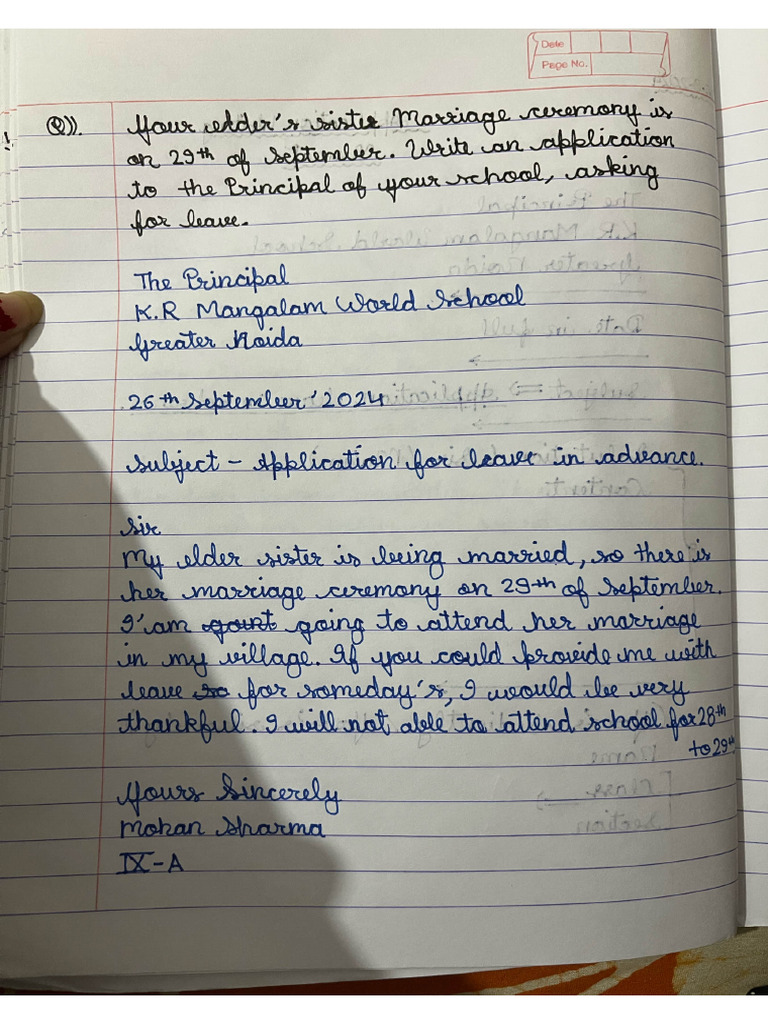 Date
Page No.
Q)). Your elder's sister Marriage ceremony is
on 29th of September. Write an application
to the Principal of your school, asking
for leave.
The Principal
K.R Mangalam World School
Greater Noida
26th September'2024
Subject - Application for leave in advance.
Sir
My elder sister is being married, so there is
her marriage ceremony on 29th of September.
I'am going to attend her marriage
in my village. If you could provide me with
leave so for someday's, I would be very
thankful. I will not able to attend school for 28th
to 29th
Yours Sincerely
Mohan Sharma
IX-A